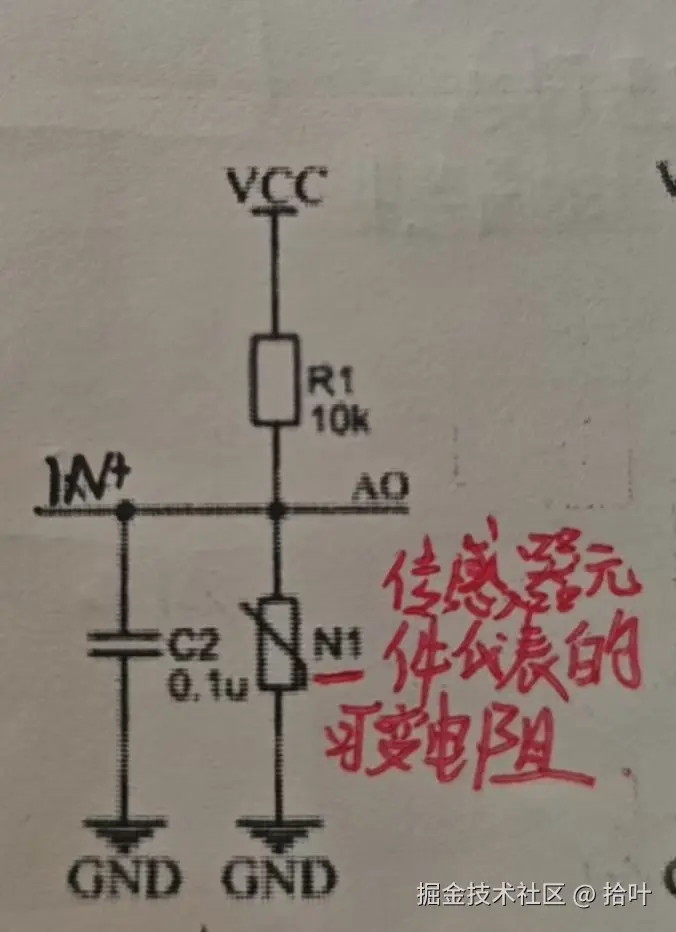 VCC
R1
10k
IN+
AO
传感器元
件代表的
可变电阻
C2
0.1u
N1
GND
GND
掘金技术社区 @ 拾叶